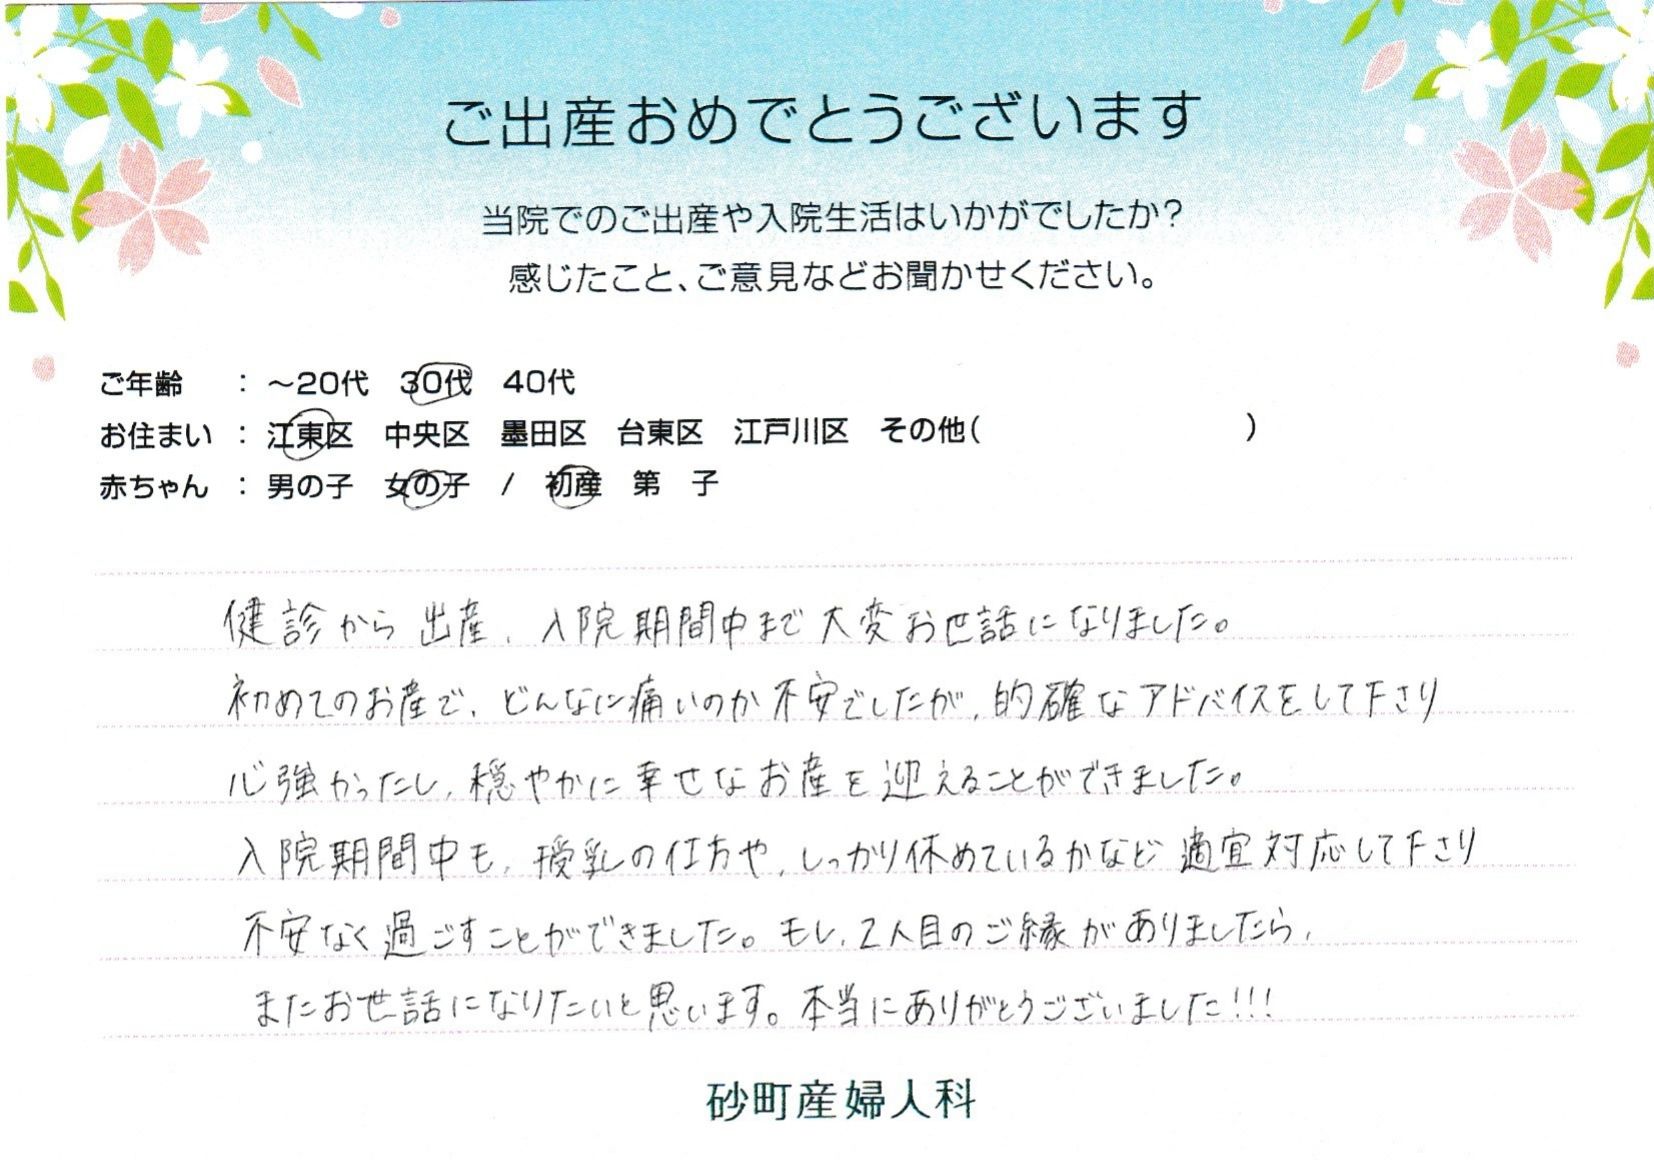 ご出産おめでとうございます
当院でのご出産や入院生活はいかがでしたか?
感じたこと、ご意見などお聞かせください。
ご年齢 : ～20代 30代 40代
お住まい : 江東区 中央区 墨田区 台東区 江戸川区 その他( )
赤ちゃん : 男の子 女の子 / 初産 第 子
健診から出産、入院期間中まで大変お世話になりました。
初めてのお産で、どんなに痛いのか不安でしたが、的確なアドバイスをして下さり
心強かったし、穏やかに幸せなお産を迎えることができました。
入院期間中も、授乳の仕方や、しっかり休めているかなど適宜対応して下さり
不安なく過ごすことができました。もし、2人目のご縁がありましたら、
またお世話になりたいと思います。本当にありがとうございました!!!
砂町産婦人科